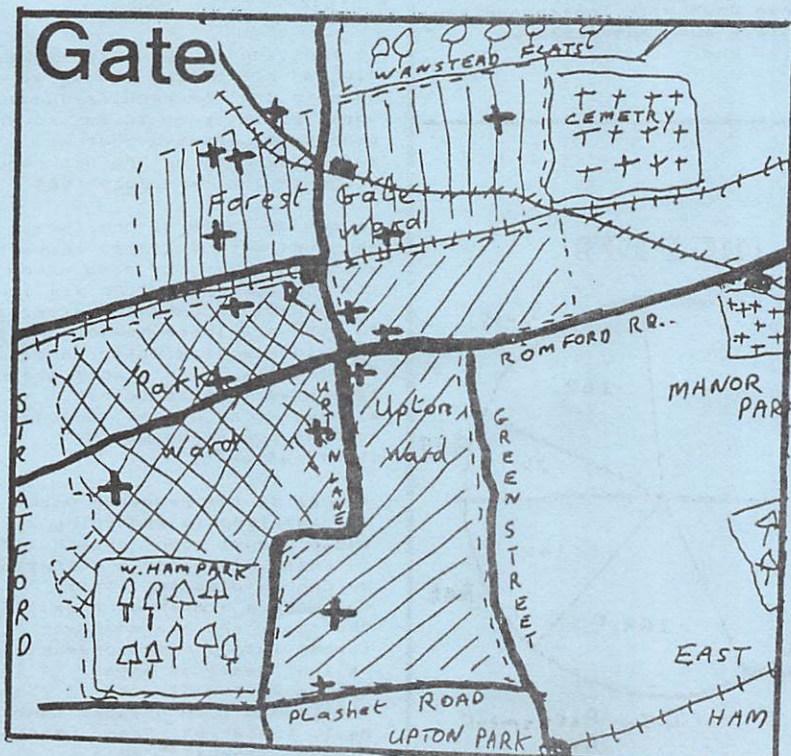 Gate
WANSTEAD FLATS
CEMETRY
Forest
Gate
Ward
ROMFORD RD..
MANOR
PARK
Park
Ward
UPTON LANE
Upton
Ward
GREEN STREET
STRATFORD
W. HAM PARK
EAST
HAM
Plashet ROAD
UPTON PARK